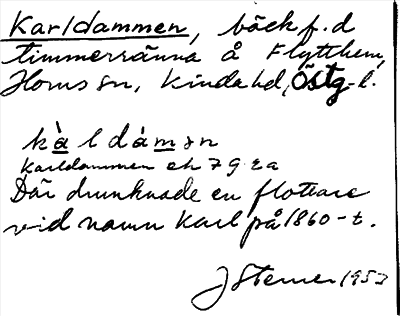 Karldammen, bäck f.d
timmerränna å Flytthem,
Horns sn, Kinda hd, Östg-l.
kàldámsn
Karldammen ek 7 g. 2a
Där drunknade en flottare
vid namn Karl på 1860-t.
J Sterner 1953